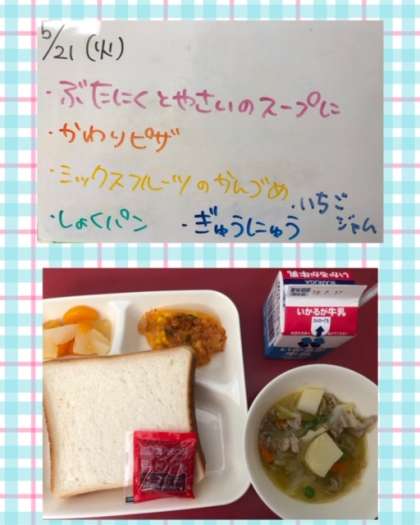 5/21(火)
・ぶたにくとやさいのスープに
・かわりピザ
・ミックスフルーツのかんづめ
・しょくパン ・ぎゅうにゅう
・いちご
ジャム
いかるが牛乳
いかるが牛乳